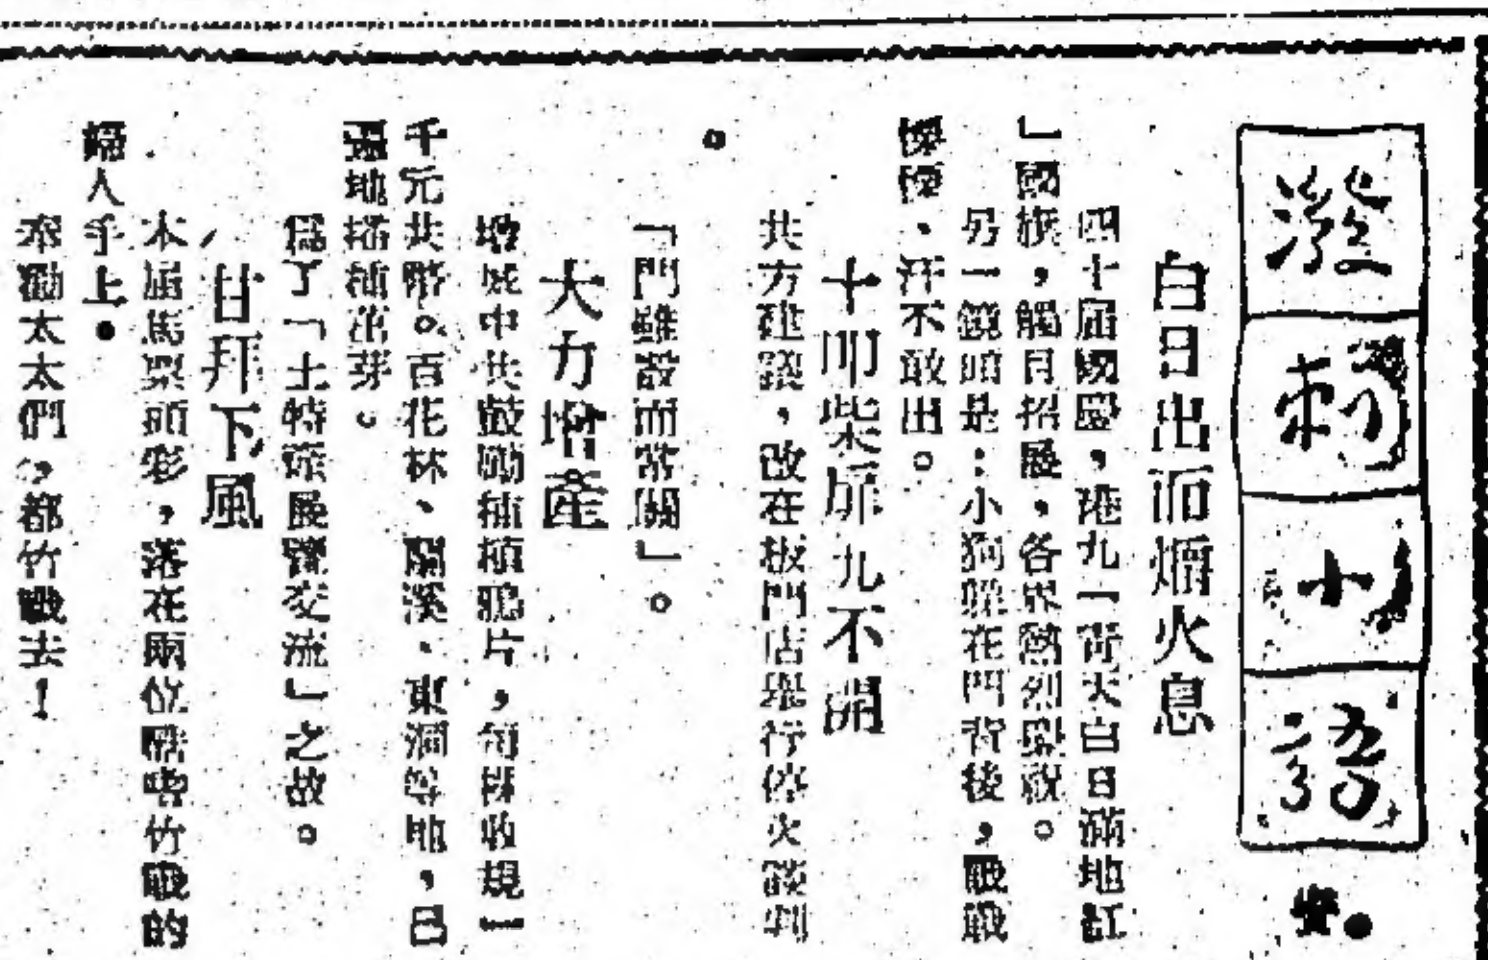 潑刺小語
白日出而爝火息
四十屆國慶，港九「青天白日滿地紅
」國旗，觸目招展，各界熱烈慶祝。
另一鏡頭是：小狗躲在門背後，戰戰
慄慄、汗不敢出。
十叩柴扉九不開
共方建議，改在板門店舉行停火談判
。
「門雖設而常關」。
大力增產
增城中共鼓勵種植鴉片，每擔收規一
千元共幣。百花林、蘭溪、東洞等地，已
遍地播種茁芽。
爲了「土特產展覽交流」之故。
甘拜下風
本屆馬票頭彩，落在兩位嗜竹戰的
婦人手上。
奉勸太太們，都竹戰去！